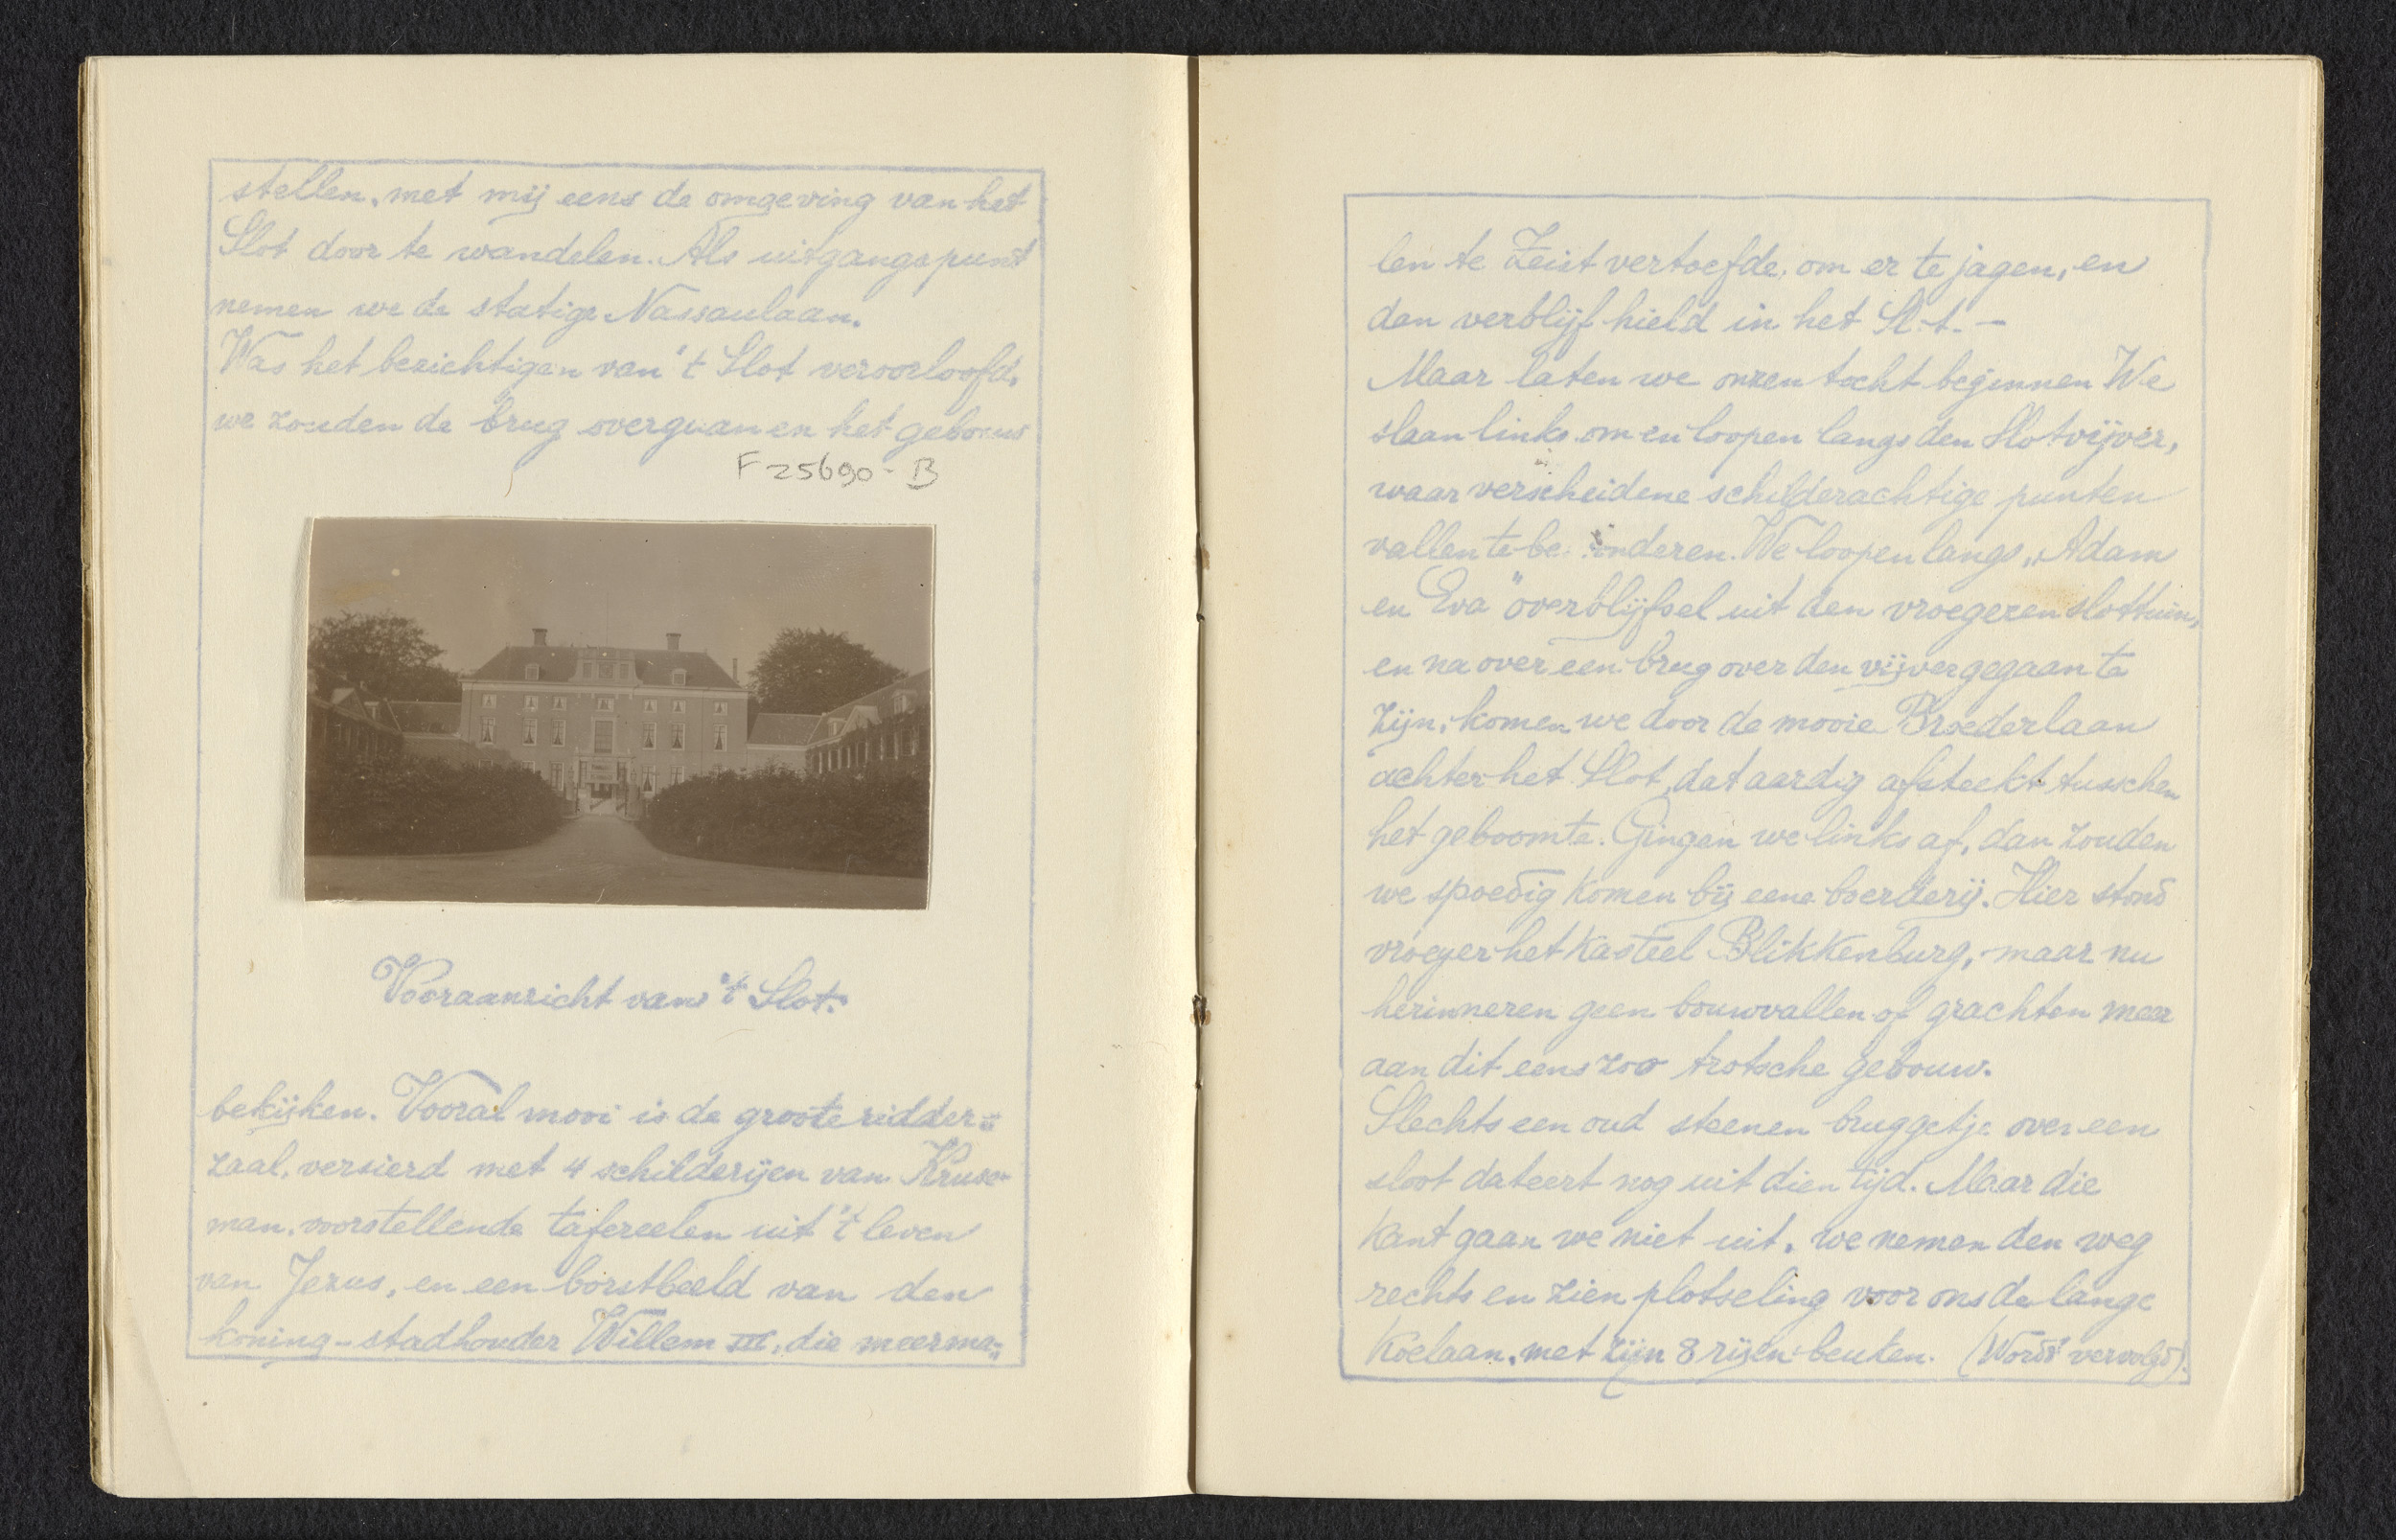 stellen, met mij eens de omgeving van het
Slot door te wandelen. Als uitgangspunt
nemen we de statige Nassaulaan.
Was het bezichtigen van 't Slot veroorloofd,
we zouden de brug overgaan en het gebouw
F 25690-B
Vooraanzicht van 't Slot.
bekijken. Vooral mooi is de groote ridder=
zaal, versierd met 4 schilderijen van Kruse-
man, voorstellende tafereelen uit 't leven
van Jezus, en een borstbeeld van den
koning-stadhouder Willem III, die meerma=
len te Zeist vertoefde, om er te jagen, en
dan verblijf hield in het Sl.t. —
Maar laten we onzen tocht beginnen We
slaan links om en loopen langs den Slotvijver,
waar verscheidene schilderachtige punten
vallen te be onderen. We loopen langs „Adam
en Eva" overblijfsel uit den vroegeren slottuin,
en na over een brug over den vijver gegaan te
zijn, komen we door de mooie Broederlaan
achter het Slot, dat aardig afsteekt tusschen
het geboomte. Gingen we links af, dan zouden
we spoedig komen bij eene boerderij. Hier stond
vroeger het Kasteel Blikkenburg, maar nu
herinneren geen bouwvallen of grachten meer
aan dit eens zoo trotsche gebouw.
Slechts een oud steenen bruggetje over een
sloot dateert nog uit dien tijd. Maar die
kant gaan we niet uit, we nemen den weg
rechts en zien plotseling voor ons de lange
Koelaan, met zijn 8 rijen beuken. (Wordt vervolgd).